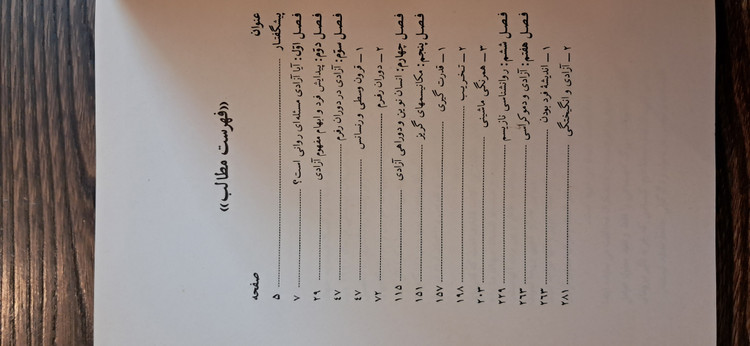 «فهرست مطالب»
عنوان صفحه
پیشگفتار ۵
فصل اوّل: آیا آزادی مسئله‌ای روانی است؟ ۷
فصل دوّم: پیدایش فرد و ابهام مفهوم آزادی ۲۹
فصل سوّم: آزادی در دوران رفرم ۴۷
۱ ــ قرون وسطی و رنسانس ۴۷
۲ ــ دوران رفرم ۷۲
فصل چهارم: انسان نوین و دوراهی آزادی ۱۱۵
فصل پنجم: مکانیسمهای گریز ۱۵۱
۱ ــ قدرت گیری ۱۵۷
۲ ــ تخریب ۱۹۸
۳ ــ همرنگی ماشینی ۲۰۳
فصل ششم: روانشناسی نازیسم ۲۲۹
فصل هفتم: آزادی و دموکراسی ۲۶۳
۱ ــ اندیشهٔ فرد بودن ۲۶۳
۲ ــ آزادی و انگیختگی ۲۸۱